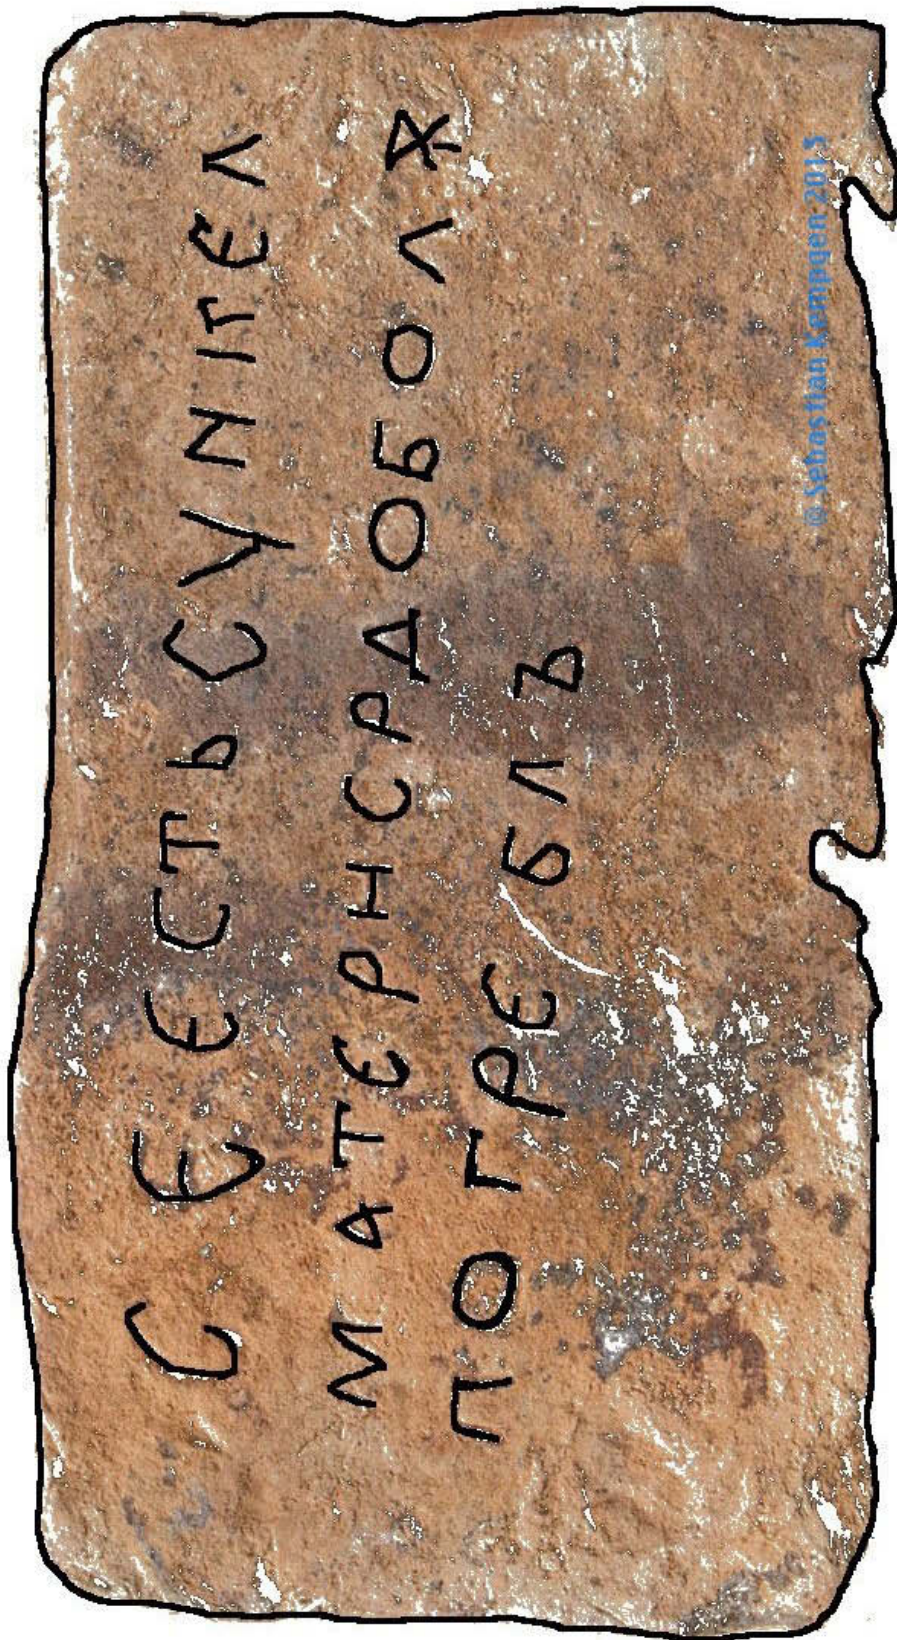 СЄ ЄСТЬ СУNIГЄЛ
МАТЄРН СРДОБОЛѪ
ПОГРЄБЛЪ
© Sebastian Kempgen 2015